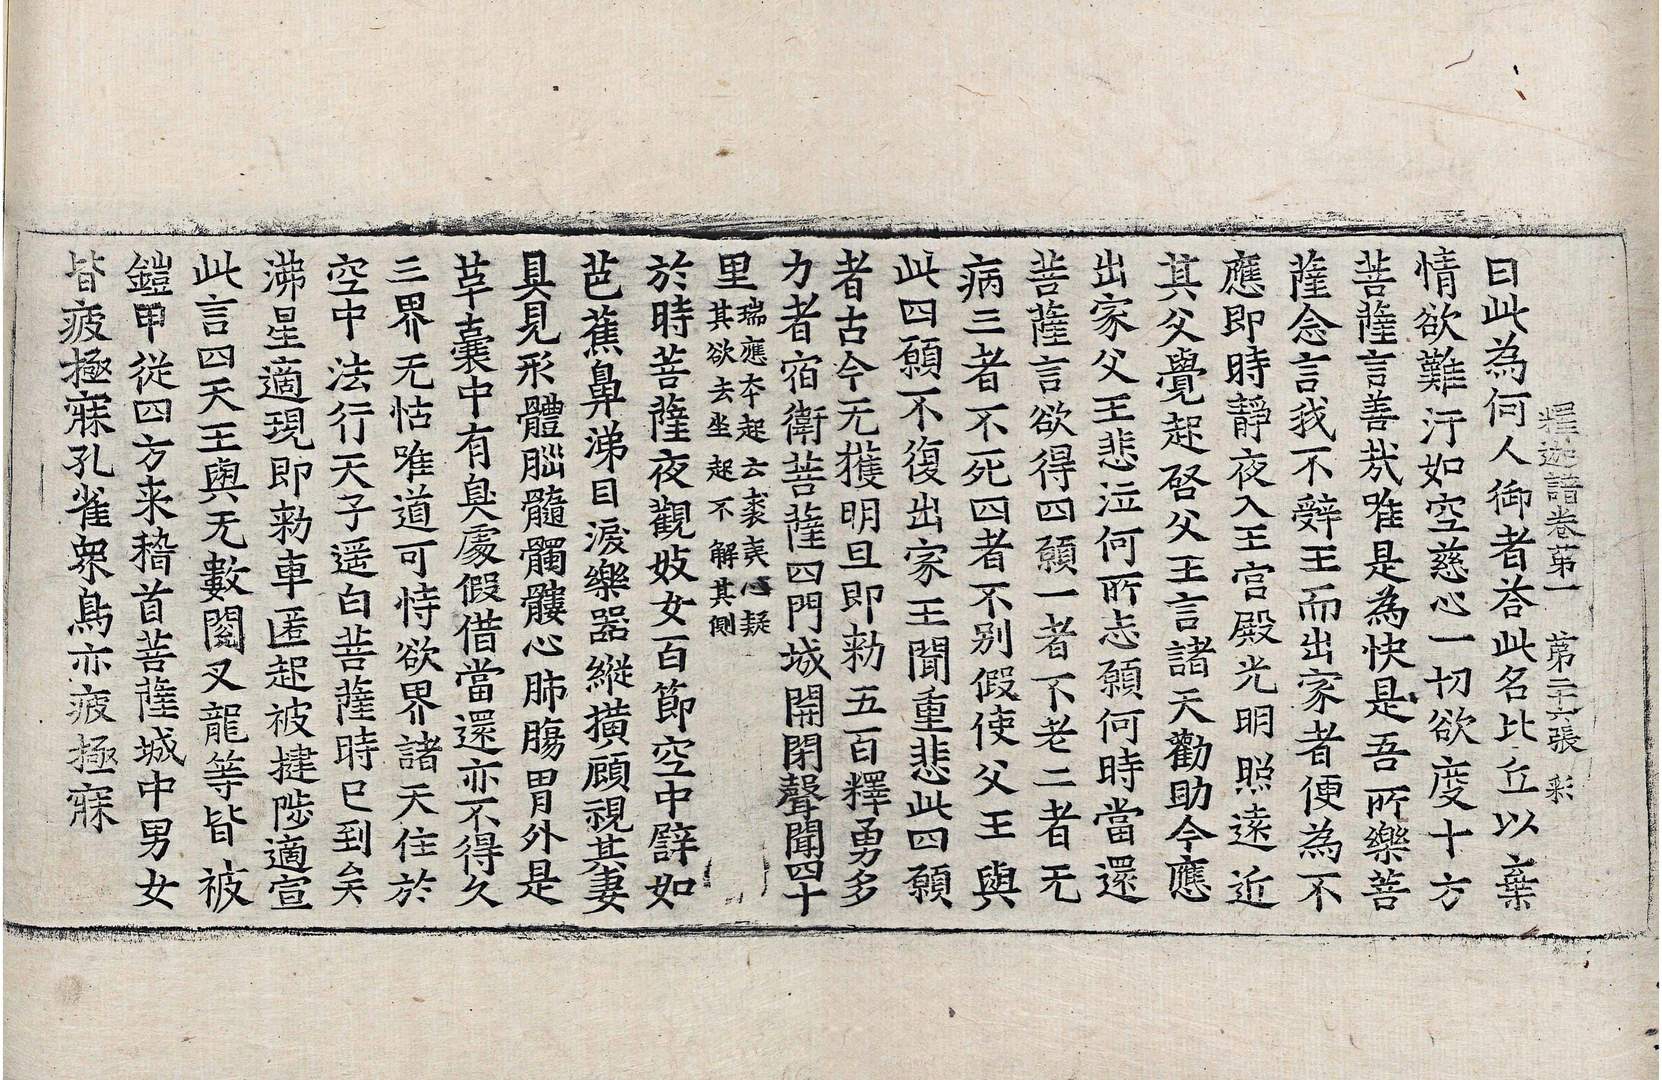 釋迦譜卷第一 第二十六張 彩
曰此為何人御者荅此名比丘以棄
情欲難汙如空慈心一切欲度十方
菩薩言善㢤唯是為快是吾所樂菩
薩念言我不辭王而出家者便為不
應即時靜夜入王宫殿光明照遠近
其父覺起啓父王言諸天勸助今應
出家父王悲泣何所志願何時當還
菩薩言欲得四願一者不老二者无
病三者不死四者不别假使父王與
此四願不復出家王聞重悲此四願
者古今无獲明旦即勑五百釋勇多
力者宿衛菩薩四門城開閉聲聞四十
里瑞應夲起云裘夷心疑
其欲去坐起不解其側
於時菩薩夜觀妓女百節空中譬如
芭蕉鼻涕目淚樂器縱撗顧視其妻
具見形體腦髓髑髏心肺腸胃外是
革囊中有臭處假借當還亦不得久
三界无怙唯道可恃欲界諸天住於
空中法行天子遥白菩薩時已到矣
沸星適現即勑車匿起被揵陟適宣
此言四天王與无數閱叉龍等皆被
鎧甲從四方来稽首菩薩城中男女
皆疲極寐孔雀衆鳥亦疲極寐